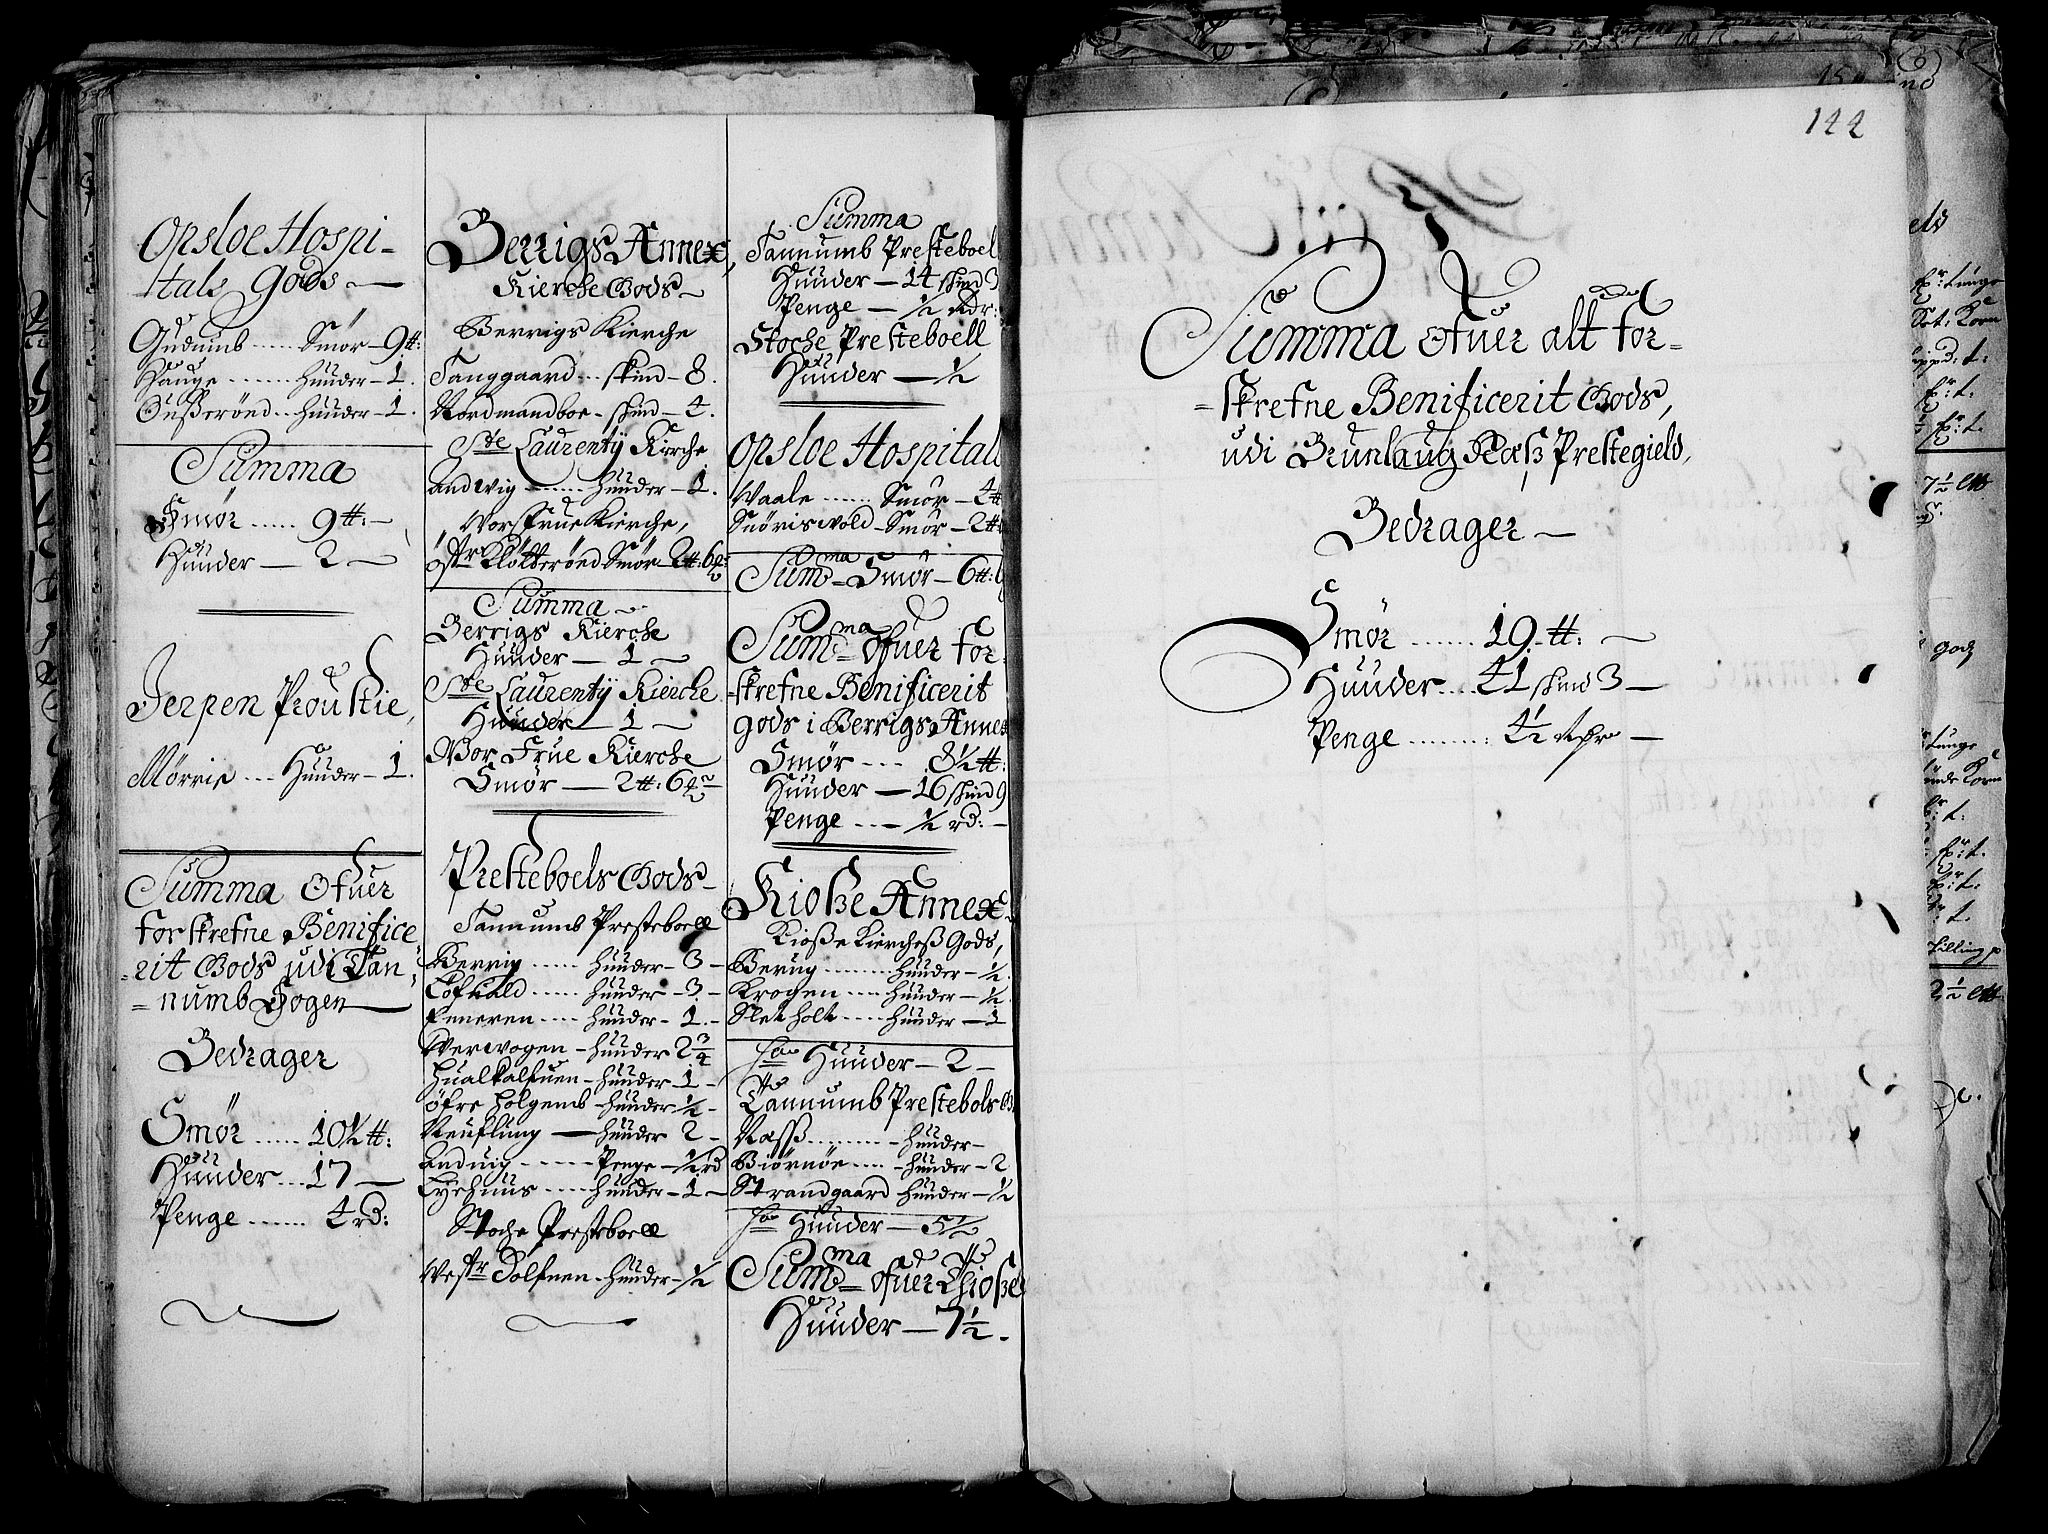 Opsloe Hospi-
tals Gods
Gudumb ...... Smör - 9 ℔:
Hauge ....... huuder - 1.
Gusserönd .. huuder - 1.
Summa
Smör ..... 9 ℔: -
Huuder - 2 -
Jerpen Proustie,
Mørrie ... Huuder - 1.
Summa Ofuer
forskrefne Benifice
=rit Gods udi Tan
=numb Sogen
Bedrager
Smör ..... 10½ ℔:
Huuder ... 17 -
Penge ...... 4 rd:
Berrigs Annex,
Kierche Gods
Berrigs Kierche
Tanggaard .. skind - 8.
Nordmandboe - skind - 4.
Ste Laurentij Kirche
Andwig ...... huuder - 1.
Worsfrue Kierche,
östr Klötterönd Smör - 2 ℔: 6
Summa
Berrigs Kierche
Huuder - 1 -
Ste Laurentij Kirche
Huuder - 1 -
Wor Frue Kierche
Smör - 2 ℔: 6
Presteboels Gods
Tannumb Presteboell
Berrig ..... huuder - 3 -
Lofuald ..... huuder - 3 -
Feneren .... huuder - 1. -
Werwogen - huuder 2¾
Hualkalfuen - huuder - 1 -
öfre Holgemb - huuder - ½ -
Neuflung - huuder 2 -
Anduig ..... Penge - ½ rd
Eyehuus .... huuder - 1 -
Stoche Presteboell
Westr Dolfuen - huuder - ½
Summa
Tannumb Presteboel
Huuder - 14 skind 3
Penge - ½ rdr:
Stoche Presteboell
Huuder - ½
Opsloe Hospitall
Waale ...... Smör - 4 ℔
Snöriswold - Smör - 2 ℔
Summa Smör - 6 ℔: 6
Summa ofuer for:
skrefne Benificerit
gods i Berrigs Annex
Smör --- 8½ ℔:
Huuder - 16 skind 9
Penge --- ½ rd: -
Kiosse Annex
Kiosse Kircheß Gods,
Berug ....... huuder - ½.
Krogen .... huuder - ½.
Sletholt .... huuder - 1
Sa Huuder - 2 -
Tannumb Prestebols G.
Næss ........ huuder -
Biörnöe .... huuder - 2
Strandgaard huuder - ½
Sa Huuder - 5½
Summa ofuer Thiosse
Huuder - 7½.
144
Summa Ofuer alt for=
=skrefne Benificerit Gods,
udi Brunlaug Næss Prestegield,
Bedrager -
Smör ...... 19. ℔: -
Huuder .... 41 skind 3 -
Penge ........ 4½ -